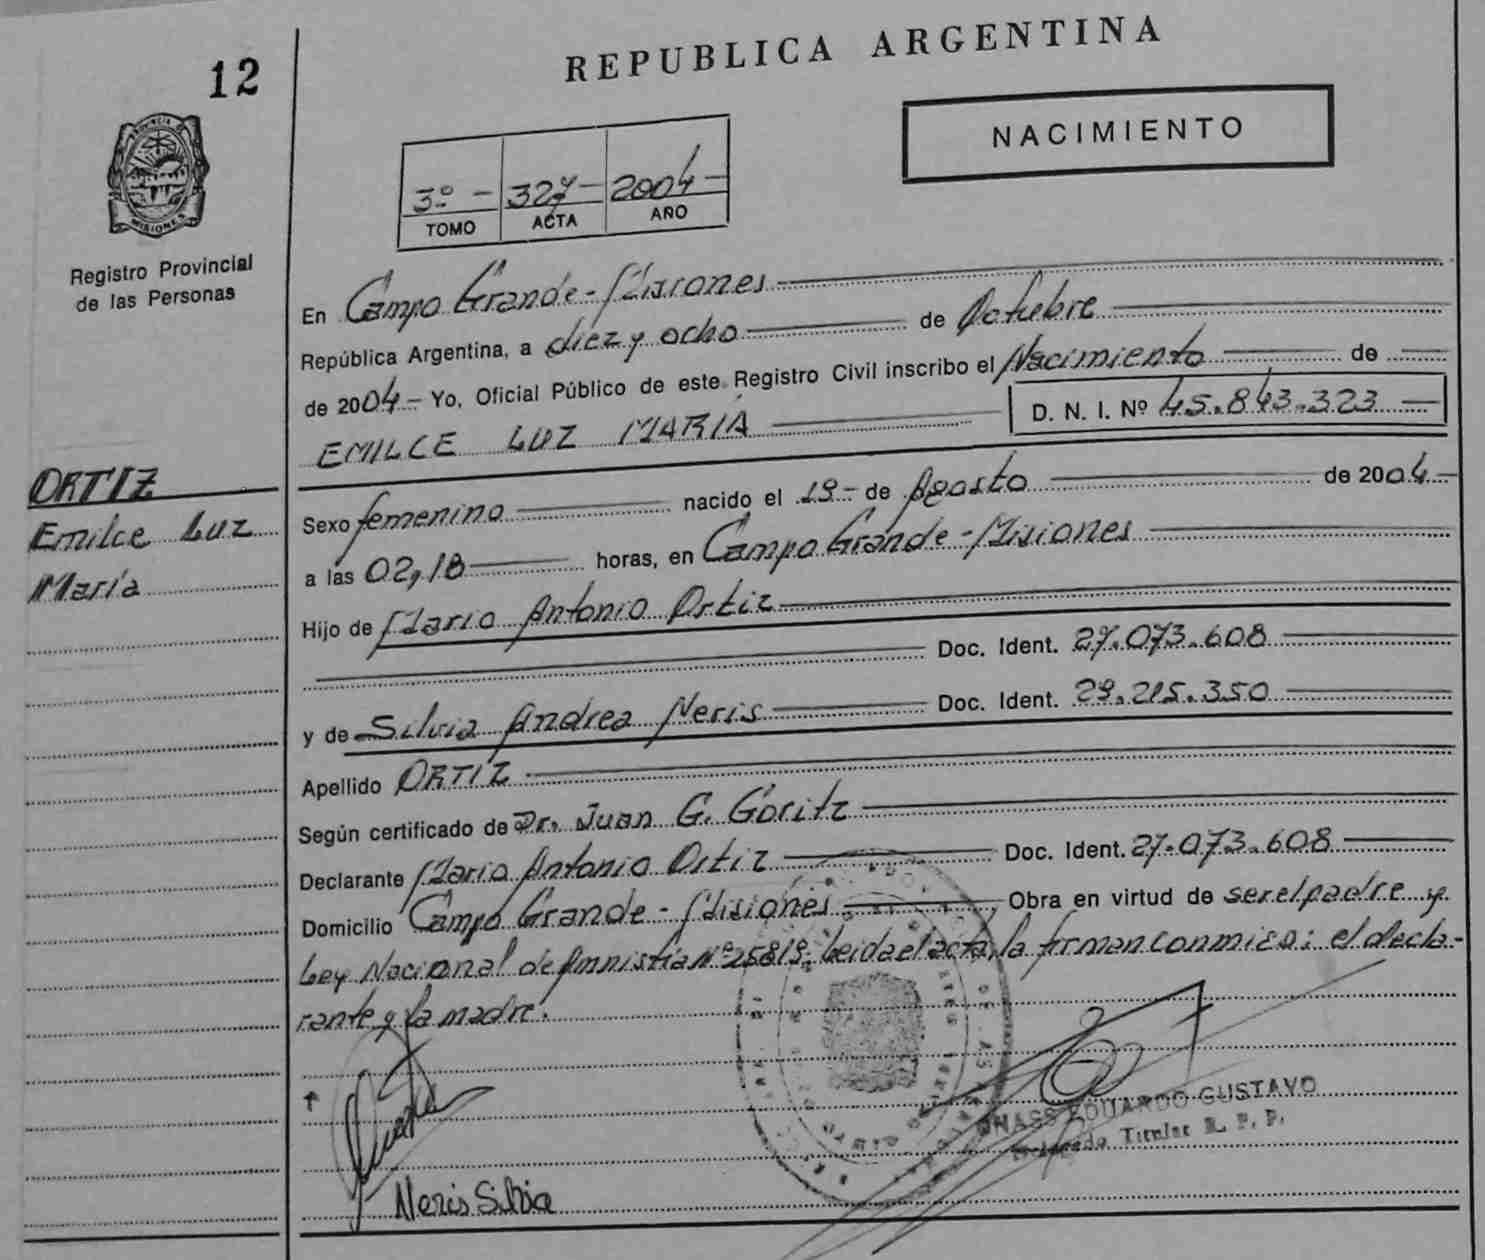 12
REPUBLICA ARGENTINA
NACIMIENTO
PROVINCIA DE
MISIONES
Registro Provincial
de las Personas
3º - 327 - 2004 -
TOMO ACTA AÑO
En Campo Grande - Misiones
República Argentina, a diez y ocho de Octubre
de 2004 - Yo, Oficial Público de este Registro Civil inscribo el Nacimiento de
EMILCE LUZ MARIA D. N. I. Nº 45.843.323
ORTIZ
Emilce Luz
María
Sexo femenino nacido el 19 - de Agosto de 2004 -
a las 02,18 horas, en Campo Grande - Misiones
Hijo de Mario Antonio Ortiz
Doc. Ident. 27.073.608
y de Silvia Andrea Neris Doc. Ident. 29.215.350
Apellido ORTIZ
Según certificado de Dr. Juan G. Goritz
Declarante Mario Antonio Ortiz Doc. Ident. 27.073.608
Domicilio Campo Grande - Misiones Obra en virtud de ser el padre y
Ley Nacional de Amnistia Nº 25819. Leida el acta, la firman conmigo: el decla-
rante y la madre.
EDUARDO GUSTAVO
Titular R. P. P.
Neris Silvia